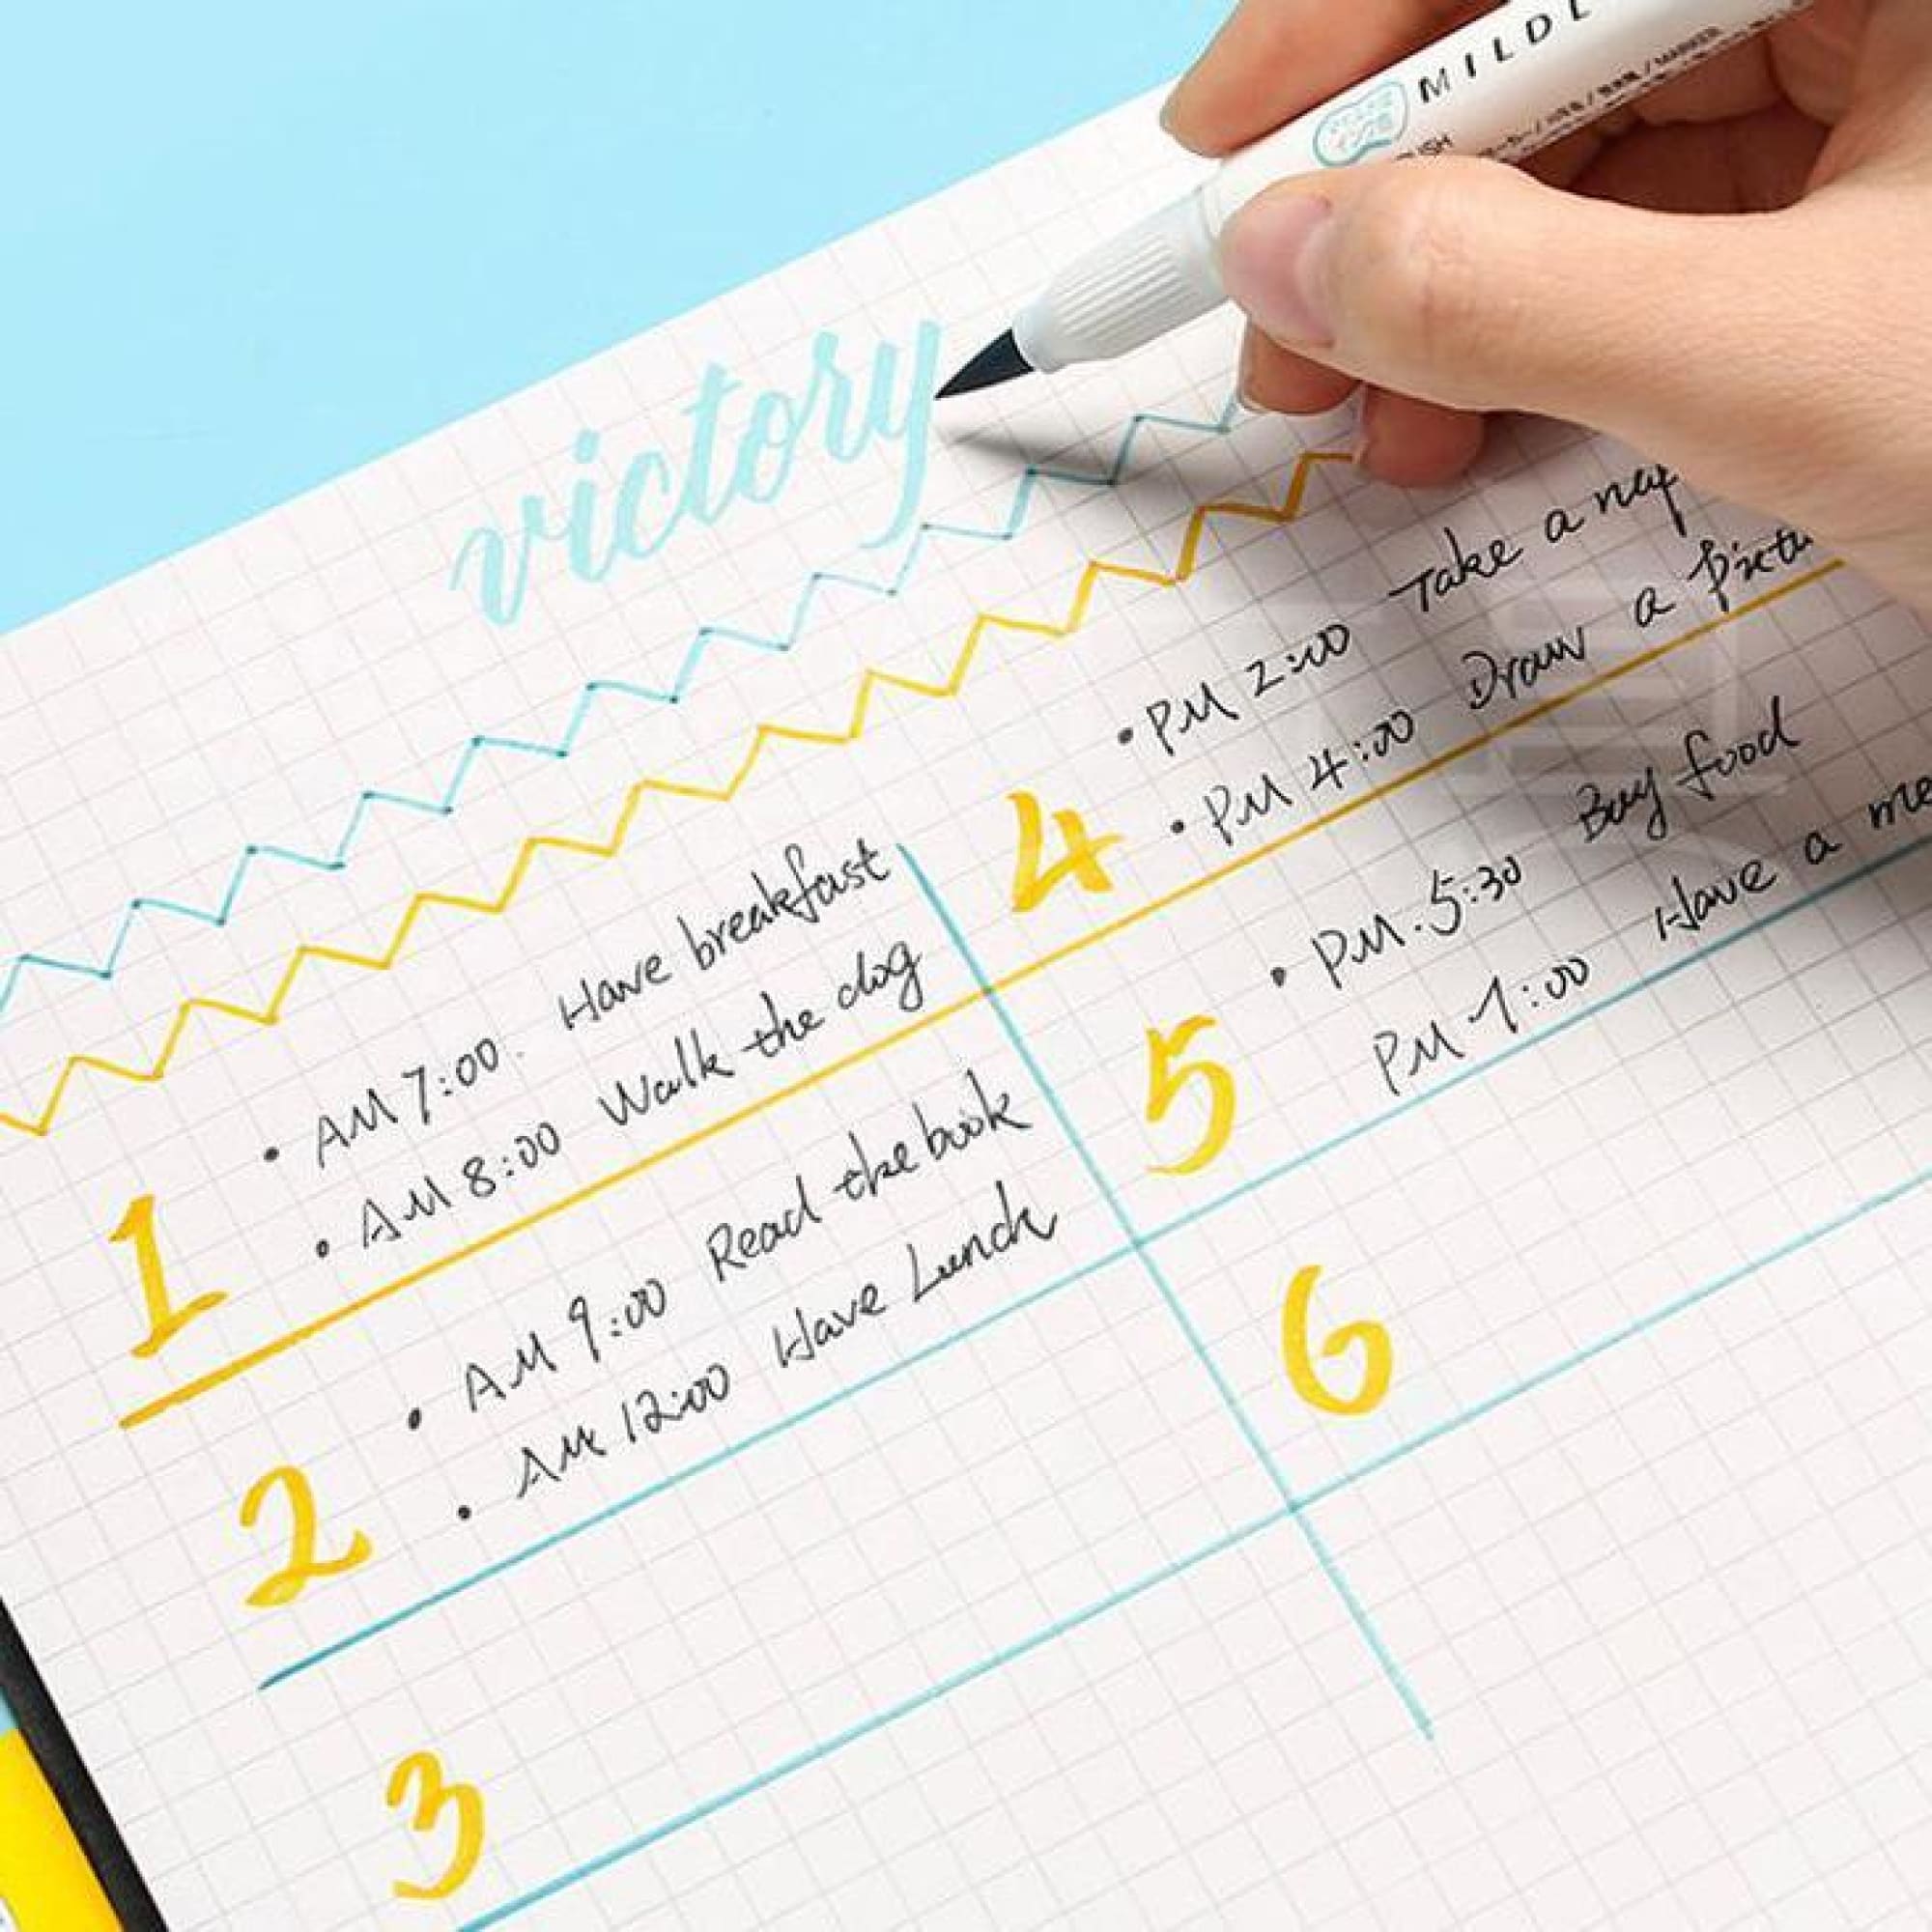 MILDL
MARKER
victory
1
• AM 7:00. Have breakfast
• AM 8:00 Walk the dog
2
• AM 9:00 Read the book
• AM 12:00 Have Lunch
3
4
• PM 2:00 Take a nap
• PM 4:00 Draw a Pictu
5
• PM. 5:30 Buy food
PM 7:00 Have a me
6